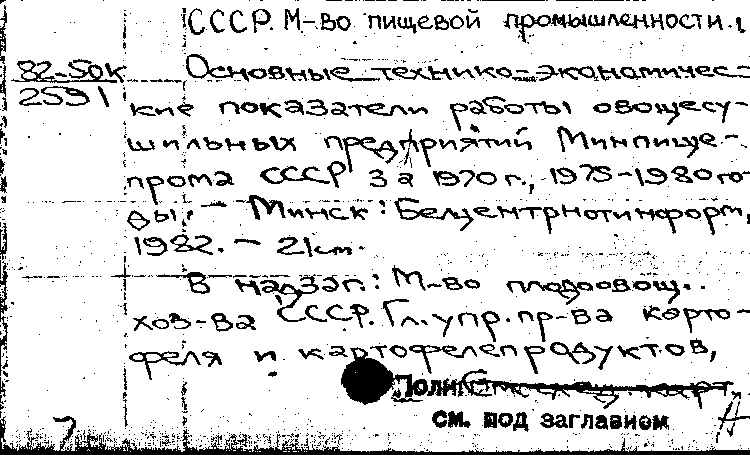 СССР. М-во пищевой промышленности.
82-50к Основные технико-экономичес-
2591 кие показатели работы овощесу-
шильных предприятий Минпище-
прома СССР за 1970 г., 1975-1980 го-
ды. - Минск: Белцентрнотиинформ,
1982. - 21 см.
В надзаг.: М-во плодоовощ.
хоз-ва СССР. Гл. упр. пр-ва карто-
феля и картофелепродуктов,
см. под заглавием